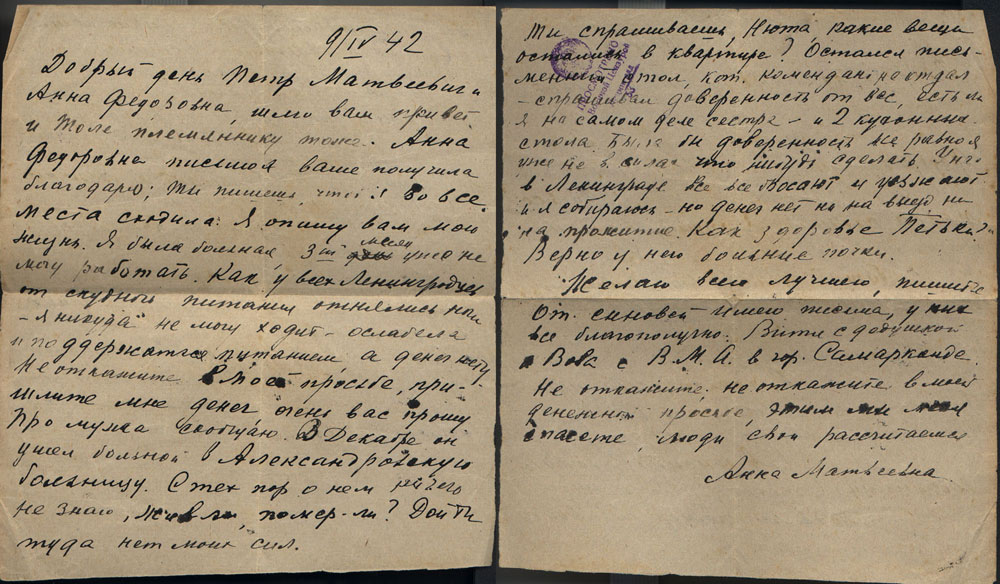 9/IV 42
Добрый день Петр Матвеевич и
Анна Федоровна, шлю вам привет
и Толе племяннику тоже. Анна
Федоровна письмо ваше получила
благодарю; ты пишешь, что! Во все
места сходила. Я опишу вам мою
жизнь. Я была больная, 3ий месяц ужо не
могу работать. Как у всех Ленинградцев
от скудного питания отнялись ноги
– я никуда не могу ходит – ослабела
и поддержаться питанием а денег нету.
Не откажите в моей просьбе, при-
шлите мне денег очень вас прошу
Про мужа сообщаю. В Декабре он
ушел больной в Александровскую
больницу. С тех пор о нем ничего
не знаю, жив-ли, помер-ли? Дойти
туда нет моих сил.
Ты спрашиваешь, Нюта, какие вещи
остались в квартире? Остался пись-
менный стол, кот. комендант не отдал
– спрашивал доверенность от вас, есть ли
я на самом деле сестра – и 2 кухонных
стола. Была бы доверенность все равно я
уже не в силах что нибудь сделать. У нас
в Ленинграде все все бросают и уезжают
и я собираюсь – но денег нет ни на выезд ни
на прожитие. Как здоровье Петьки?
Верно у него больные почки.
Желаю всего лучшего, пишите
От сыновей имею письма, у них
все благополучно. Витя с дедушкой
а Вова с В.М.А. в гор. Самарканде
Не откажите, не откажите в моей
денежной просьбе, этим мы меня
спасете, люди свои рассчитаемся
Анна Матвеевна
ПРОСМОТРЕНО
Военной Цензурой